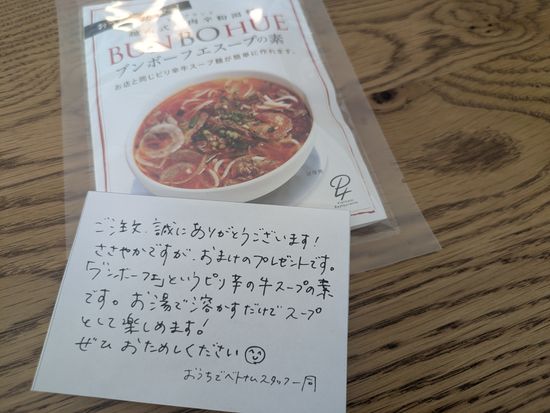 BUN BO HUE
ブンボーフエスープの素
お店と同じピリ辛牛スープ麺が簡単に作れます。
ご注文、誠にありがとうございます!
ささやかですが、おまけのプレゼントです。
「ブンボーフエ」というピリ辛の牛スープの素
です。お湯で溶かすだけでスープ
として楽しめます!
ぜひ おためしください
おうちでベトナムスタッフ一同